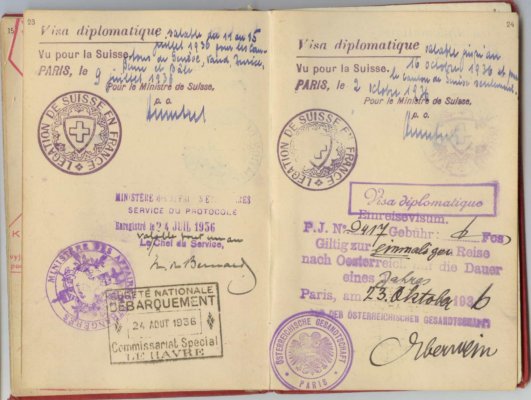 23
Visa diplomatique valable du 11 au 15
Vu pour la Suisse. juillet 1936 pour les can-
tons de Genève, Vaud,
Berne et Bâle
PARIS, le 9 juillet 1936
Pour le Ministre de Suisse,
p. o.
LÉGATION DE SUISSE EN FRANCE
MINISTÈRE DES AFFAIRES ÉTRANGÈRES
SERVICE DU PROTOCOLE
Enregistré le 24 JUIL 1936
valable pour un an
Le Chef du Service,
MINISTÈRE DES AFFAIRES ÉTRANGÈRES
SÛRETÉ NATIONALE
DÉBARQUEMENT
24 AOUT 1936
Commissariat Spécial
LE HAVRE
24
Visa diplomatique valable jusqu'au
Vu pour la Suisse. 16 octobre 1936 et pour
le canton de Genève seulement.
PARIS, le 2 octobre 1936
Pour le Ministre de Suisse,
p. o.
LÉGATION DE SUISSE EN FRANCE
Visa diplomatique
Einreisevisum.
P. J. No 9417 Gebühr: Fcs
Giltig zur einmaligen Reise
nach Oesterreich auf die Dauer
eines Jahres
Paris, am 23. Oktober 1936
DER ÖSTERREICHISCHEN GESANDTSCHAFT
ÖSTERREICHISCHE GESANDTSCHAFT
PARIS